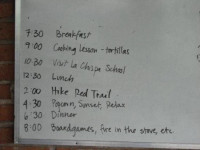 7:30 Breakfast
9:00 Cooking Lesson - tortillas
10:30 Visit La Chispa School
12:30 Lunch
2:00 Hike Red Trail
4:30 Popcorn, Sunset, Relax
6:30 Dinner
8:00 Boardgames, fire in the stove, etc.